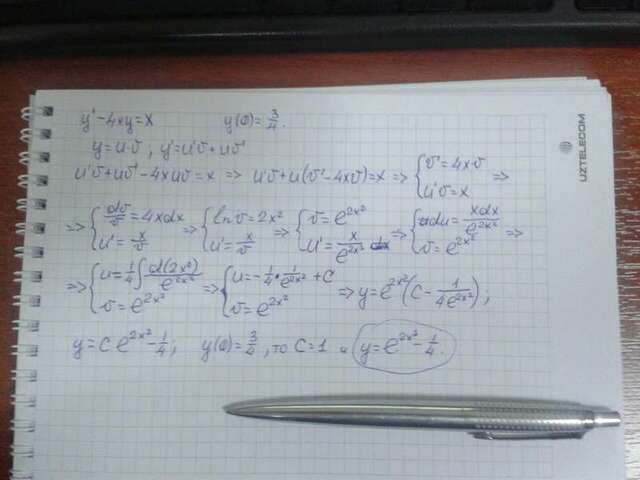 y' - 4xy = x y(0) = 3/4.
y = u·v, y' = u'v + uv'
u'v + uv' - 4xuv = x => u'v + u(v' - 4xv) = x => { v' = 4x·v ; u'v = x =>
=> { dv/v = 4xdx ; u' = x/v => { ln v = 2x² ; u' = x/v => { v = e^(2x²) ; u' = x/e^(2x²) => { du = xdx/e^(2x²) ; v = e^(2x²) =>
=> { u = 1/4 ∫ d(2x²)/e^(2x²) ; v = e^(2x²) => { u = -1/4 · 1/e^(2x²) + C ; v = e^(2x²) => y = e^(2x²) (C - 1/(4e^(2x²)));
y = C e^(2x²) - 1/4; y(0) = 3/4, то C = 1 и y = e^(2x²) - 1/4.
UZTELECOM